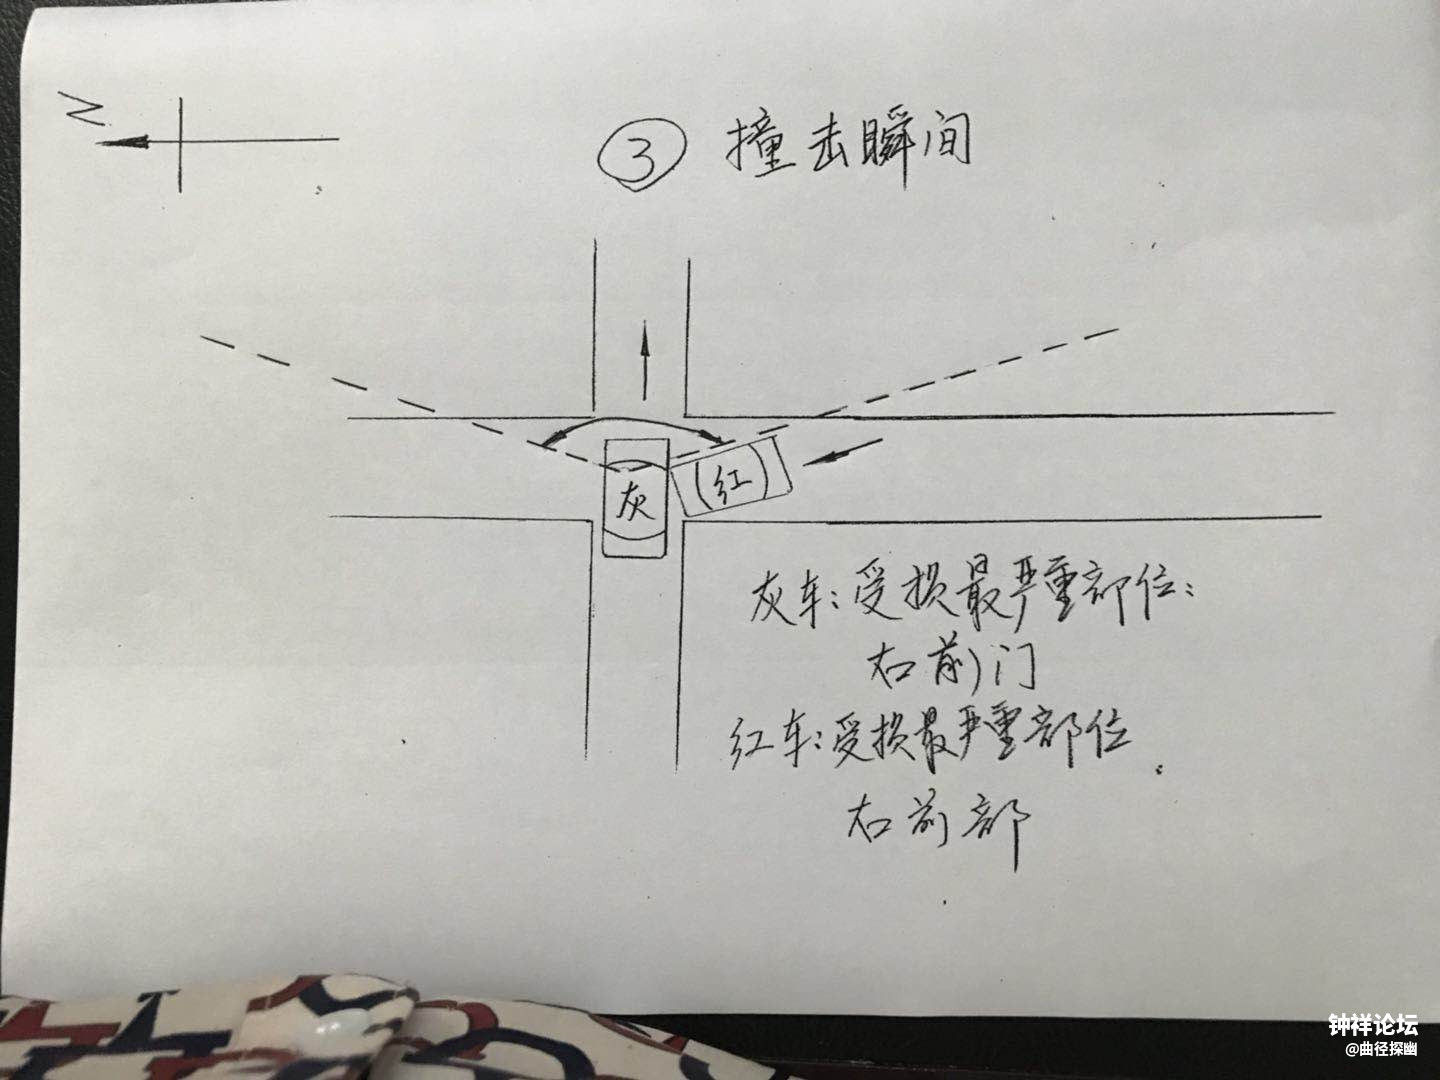 N
③ 撞击瞬间
灰
(红)
灰车:受损最严重部位:
右前门
红车:受损最严重部位
右前部
钟祥论坛
@曲径探幽